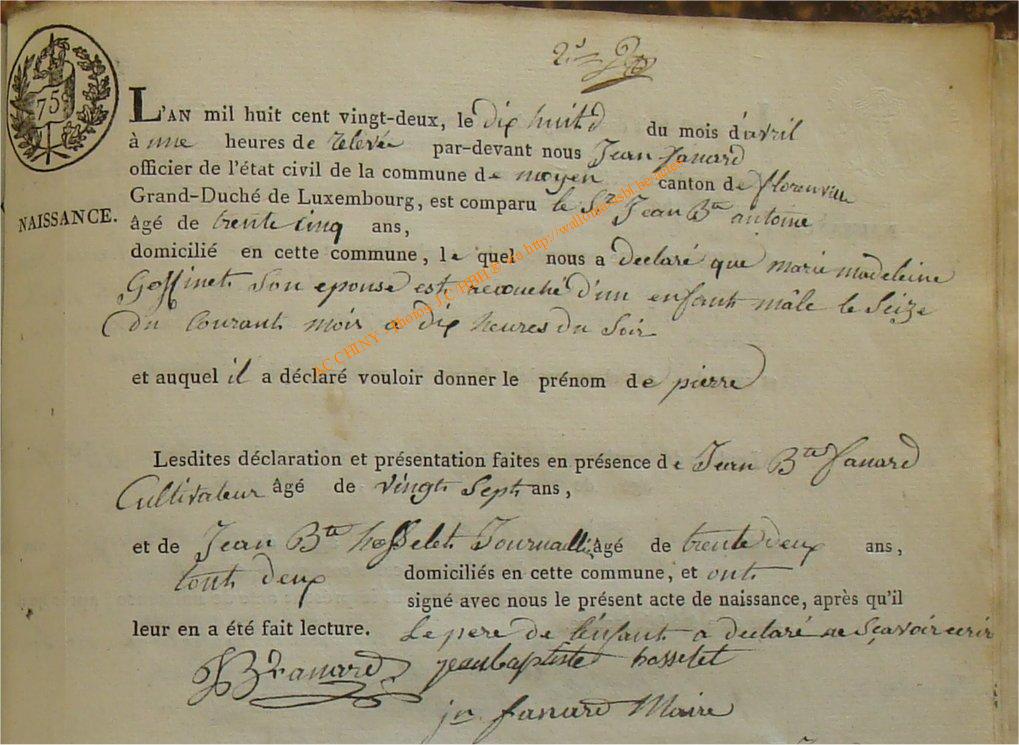 75
L'AN mil huit cent vingt-deux, le dix huit du mois d'avril
à une heures de relevée par-devant nous Jean fanard
officier de l'état civil de la commune de moyen canton de florenville
NAISSANCE.
Grand-Duché de Luxembourg, est comparu le Sr Jean Bte antoine
âgé de trente cinq ans,
domicilié en cette commune, le quel nous a declaré que marie madeleine
Goffinet son epouse est accouché d'un enfant mâle le Seize
du Courant mois a dix heures du Soir
et auquel il a déclaré vouloir donner le prénom de pierre
Lesdites déclaration et présentation faites en présence de Jean Bte fanard
Cultivateur âgé de vingt Sept ans,
et de Jean Bte hosselet Journallier âgé de trente deux ans,
tout deux domiciliés en cette commune, et ont
signé avec nous le présent acte de naissance, après qu'il
leur en a été fait lecture. Le pere de l'enfant a declaré ne Sçavoir ecrir
JB fanard jean baptiste hosselet
jn fanard Maire